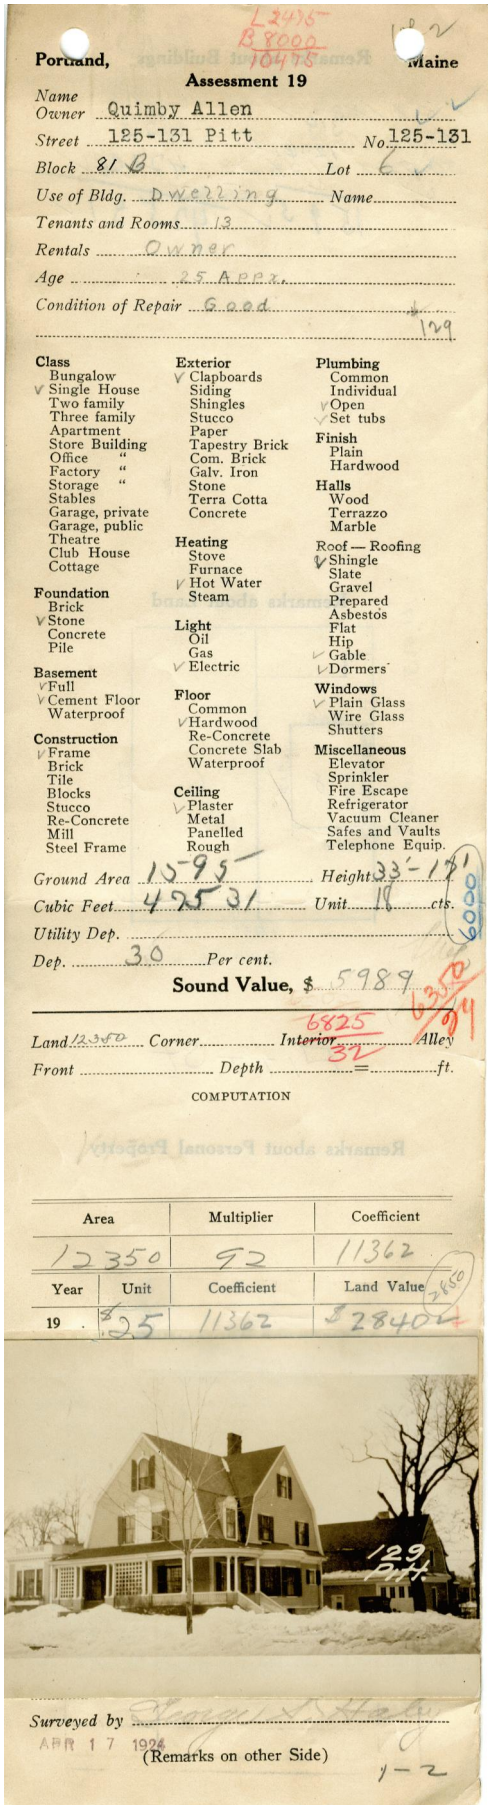 L 2475
B 8000
10475
Portland, Maine
Assessment 19
Name
Owner Quimby Allen
Street 125-131 Pitt No. 125-131
Block 81 B Lot 6
Use of Bldg. Dwelling Name
Tenants and Rooms 13
Rentals Owner
Age 25 Appx.
Condition of Repair Good
129
Class
Bungalow
✓ Single House
Two family
Three family
Apartment
Store Building
Office "
Factory "
Storage "
Stables
Garage, private
Garage, public
Theatre
Club House
Cottage
Foundation
Brick
✓ Stone
Concrete
Pile
Basement
✓ Full
✓ Cement Floor
Waterproof
Construction
✓ Frame
Brick
Tile
Blocks
Stucco
Re-Concrete
Mill
Steel Frame
Exterior
✓ Clapboards
Siding
Shingles
Stucco
Paper
Tapestry Brick
Com. Brick
Galv. Iron
Stone
Terra Cotta
Concrete
Heating
Stove
Furnace
✓ Hot Water
Steam
Light
Oil
Gas
✓ Electric
Floor
Common
✓ Hardwood
Re-Concrete
Concrete Slab
Waterproof
Ceiling
✓ Plaster
Metal
Panelled
Rough
Plumbing
Common
Individual
✓ Open
✓ Set tubs
Finish
Plain
Hardwood
Halls
Wood
Terrazzo
Marble
Roof — Roofing
✓ Shingle
Slate
Gravel
Prepared
Asbestos
Flat
Hip
✓ Gable
✓ Dormers
Windows
✓ Plain Glass
Wire Glass
Shutters
Miscellaneous
Elevator
Sprinkler
Fire Escape
Refrigerator
Vacuum Cleaner
Safes and Vaults
Telephone Equip.
Ground Area 1595 Height 33'-17'
Cubic Feet 42531 Unit 18 cts.
6000
Utility Dep.
Dep. 30 Per cent.
Sound Value, $ 5989
6350/24
6825
32
Land 12350 Corner Interior Alley
Front Depth = ft.
COMPUTATION
Area Multiplier Coefficient
12350 92 11362
Year Unit Coefficient Land Value
2850
19 $.25 11362 $2840
129
Pitt.
Surveyed by George S. Haley
APR 17 1924
(Remarks on other Side)
1-2